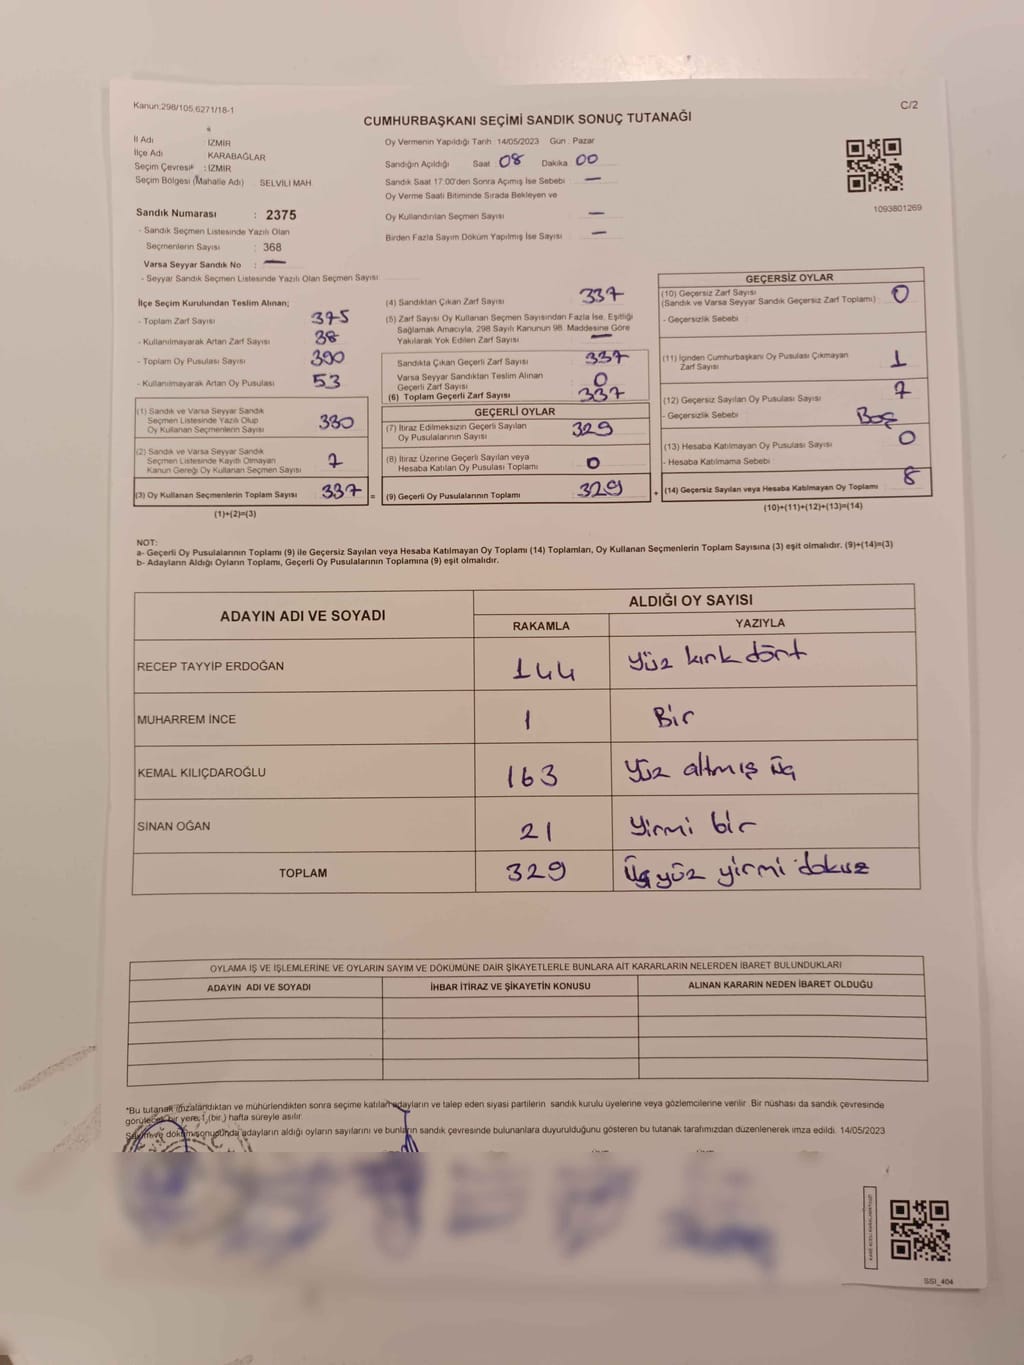 Kanun:298/105,6271/18-1
C/2
CUMHURBAŞKANI SEÇİMİ SANDIK SONUÇ TUTANAĞI
İl Adı : İZMİR
İlçe Adı : KARABAĞLAR
Seçim Çevresi : İZMİR
Seçim Bölgesi (Mahalle Adı) : SELVİLİ MAH.
Sandık Numarası : 2375
- Sandık Seçmen Listesinde Yazılı Olan
Seçmenlerin Sayısı : 368
Varsa Seyyar Sandık No : —
- Seyyar Sandık Seçmen Listesinde Yazılı Olan Seçmen Sayısı
Oy Vermenin Yapıldığı Tarih : 14/05/2023 Gün : Pazar
Sandığın Açıldığı Saat : 08 Dakika : 00
Sandık Saat 17:00'den Sonra Açılmış İse Sebebi : —
Oy Verme Saati Bitiminde Sırada Bekleyen ve
Oy Kullandırılan Seçmen Sayısı —
Birden Fazla Sayım Döküm Yapılmış İse Sayısı —
1093801269
İlçe Seçim Kurulundan Teslim Alınan;
- Toplam Zarf Sayısı 375
- Kullanılmayarak Artan Zarf Sayısı 38
- Toplam Oy Pusulası Sayısı 390
- Kullanılmayarak Artan Oy Pusulası 53
(1) Sandık ve Varsa Seyyar Sandık
Seçmen Listesinde Yazılı Olup
Oy Kullanan Seçmenlerin Sayısı 330
(2) Sandık ve Varsa Seyyar Sandık
Seçmen Listesinde Kayıtlı Olmayan
Kanun Gereği Oy Kullanan Seçmen Sayısı 7
(3) Oy Kullanan Seçmenlerin Toplam Sayısı 337 =
(1)+(2)=(3)
(4) Sandıktan Çıkan Zarf Sayısı 337
(5) Zarf Sayısı Oy Kullanan Seçmen Sayısından Fazla İse, Eşitliği
Sağlamak Amacıyla, 298 Sayılı Kanunun 98. Maddesine Göre
Yakılarak Yok Edilen Zarf Sayısı —
Sandıkta Çıkan Geçerli Zarf Sayısı 337
Varsa Seyyar Sandıktan Teslim Alınan
Geçerli Zarf Sayısı 0
(6) Toplam Geçerli Zarf Sayısı 337
GEÇERLİ OYLAR
(7) İtiraz Edilmeksizin Geçerli Sayılan
Oy Pusulalarının Sayısı 329
(8) İtiraz Üzerine Geçerli Sayılan veya
Hesaba Katılan Oy Pusulası Toplamı 0
(9) Geçerli Oy Pusulalarının Toplamı 329 +
GEÇERSİZ OYLAR
(10) Geçersiz Zarf Sayısı
(Sandık ve Varsa Seyyar Sandık Geçersiz Zarf Toplamı) : 0
- Geçersizlik Sebebi :
(11) İçinden Cumhurbaşkanı Oy Pusulası Çıkmayan
Zarf Sayısı 1
(12) Geçersiz Sayılan Oy Pusulası Sayısı 7
- Geçersizlik Sebebi : Boş
(13) Hesaba Katılmayan Oy Pusulası Sayısı 0
- Hesaba Katılmama Sebebi :
(14) Geçersiz Sayılan veya Hesaba Katılmayan Oy Toplamı 8
(10)+(11)+(12)+(13)=(14)
NOT:
a- Geçerli Oy Pusulalarının Toplamı (9) ile Geçersiz Sayılan veya Hesaba Katılmayan Oy Toplamı (14) Toplamları, Oy Kullanan Seçmenlerin Toplam Sayısına (3) eşit olmalıdır. (9)+(14)=(3)
b- Adayların Aldığı Oyların Toplamı, Geçerli Oy Pusulalarının Toplamına (9) eşit olmalıdır.
ADAYIN ADI VE SOYADI
ALDIĞI OY SAYISI
RAKAMLA YAZIYLA
RECEP TAYYİP ERDOĞAN 144 Yüz kırk dört
MUHARREM İNCE 1 Bir
KEMAL KILIÇDAROĞLU 163 Yüz altmış üç
SİNAN OĞAN 21 Yirmi bir
TOPLAM 329 üç yüz yirmi dokuz
OYLAMA İŞ VE İŞLEMLERİNE VE OYLARIN SAYIM VE DÖKÜMÜNE DAİR ŞİKAYETLERLE BUNLARA AİT KARARLARIN NELERDEN İBARET BULUNDUKLARI
ADAYIN ADI VE SOYADI İHBAR İTİRAZ VE ŞİKAYETİN KONUSU ALINAN KARARIN NEDEN İBARET OLDUĞU
*Bu tutanak imzalandıktan ve mühürlendikten sonra seçime katılan adayların ve talep eden siyasi partilerin sandık kurulu üyelerine veya gözlemcilerine verilir. Bir nüshası da sandık çevresinde
görülecek bir yere 1 (bir) hafta süreyle asılır.
Sayım ve döküm sonucunda adayların aldığı oyların sayılarını ve bunların sandık çevresinde bulunanlara duyurulduğunu gösteren bu tutanak tarafımızdan düzenlenerek imza edildi. 14/05/2023
SSI_404